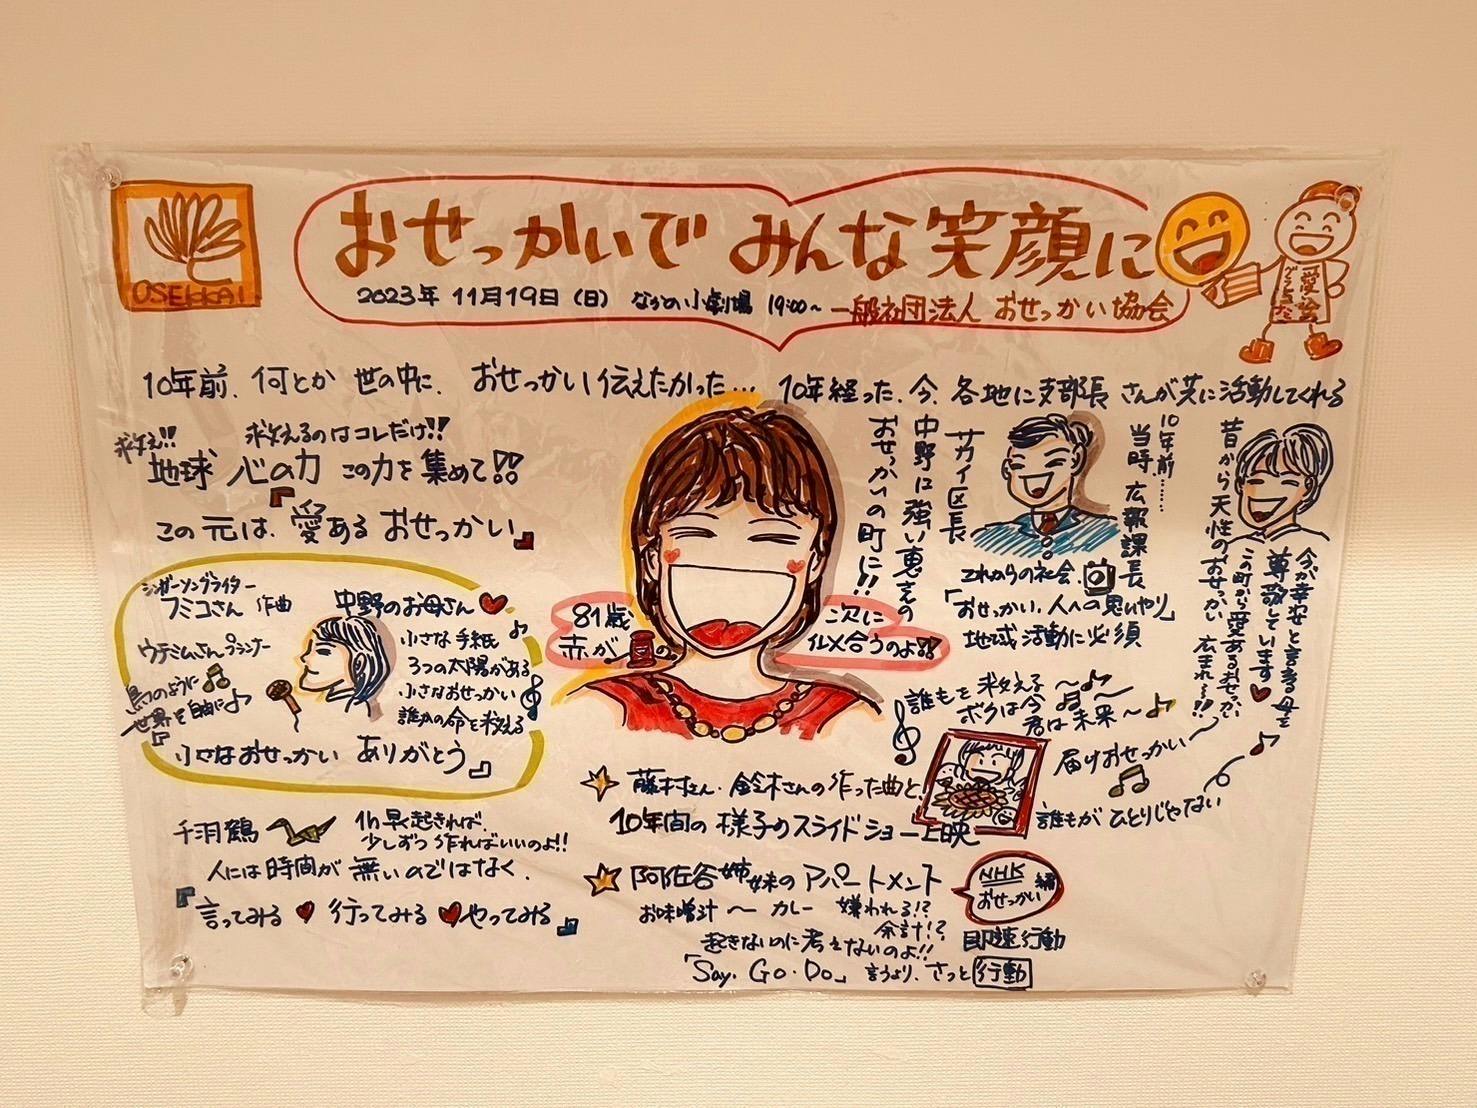 OSEKKAI
おせっかいで みんな笑顔に
2023年 11月19日(日) なかの小劇場 19:00~ 一般社団法人 おせっかい協会
愛絵
10年前、何とか 世の中に、おせっかい伝えたかった… 10年経った、今、各地に支部長さんが共に活動してくれる
救え!! 救えるのはコレだけ!!
地球 心の力 この力を集めて!!
この 元は、『愛ある おせっかい』
シンガーソングライター
フミコさん 作曲
ウテミムさん プランナー
鳥のように
世界を自由に
中野のお母さん
小さな手紙
3つの太陽がある
小さなおせっかい
誰かの命を救える
小さなおせっかい ありがとう』
千羽鶴
1h早起きれば、
少しずつ作ればいいのよ!!
人には時間が 無いのではなく、
『言ってみる 行ってみる やってみる』
81歳
赤が
次に
似合うのよ!!
中野に強い恵子の
おせっかいの町に!!
サカイ区長
10年前……
当時 広報課長
これからの社会
「おせっかい、人への思いやり」
地域活動に必須
昔から天性のおせっかい
今が幸せと言える母を
尊敬しています
この町から愛あるおせっかい
広まれ〜!!
誰もを 救える〜
ボクは今〜
君は未来〜
届けおせっかい〜
誰もが ひとりじゃない
藤村さん・鈴木さんの作った曲と、
10年間の 様子のスライドショー上映
阿佐谷姉妹のアパートメント
NHK
おせっかい編
お味噌汁 〜 カレー 嫌われる!?
余計!?
起きないのに考えないのよ!!
即速行動
「Say. Go. Do」 言うより、さっと行動